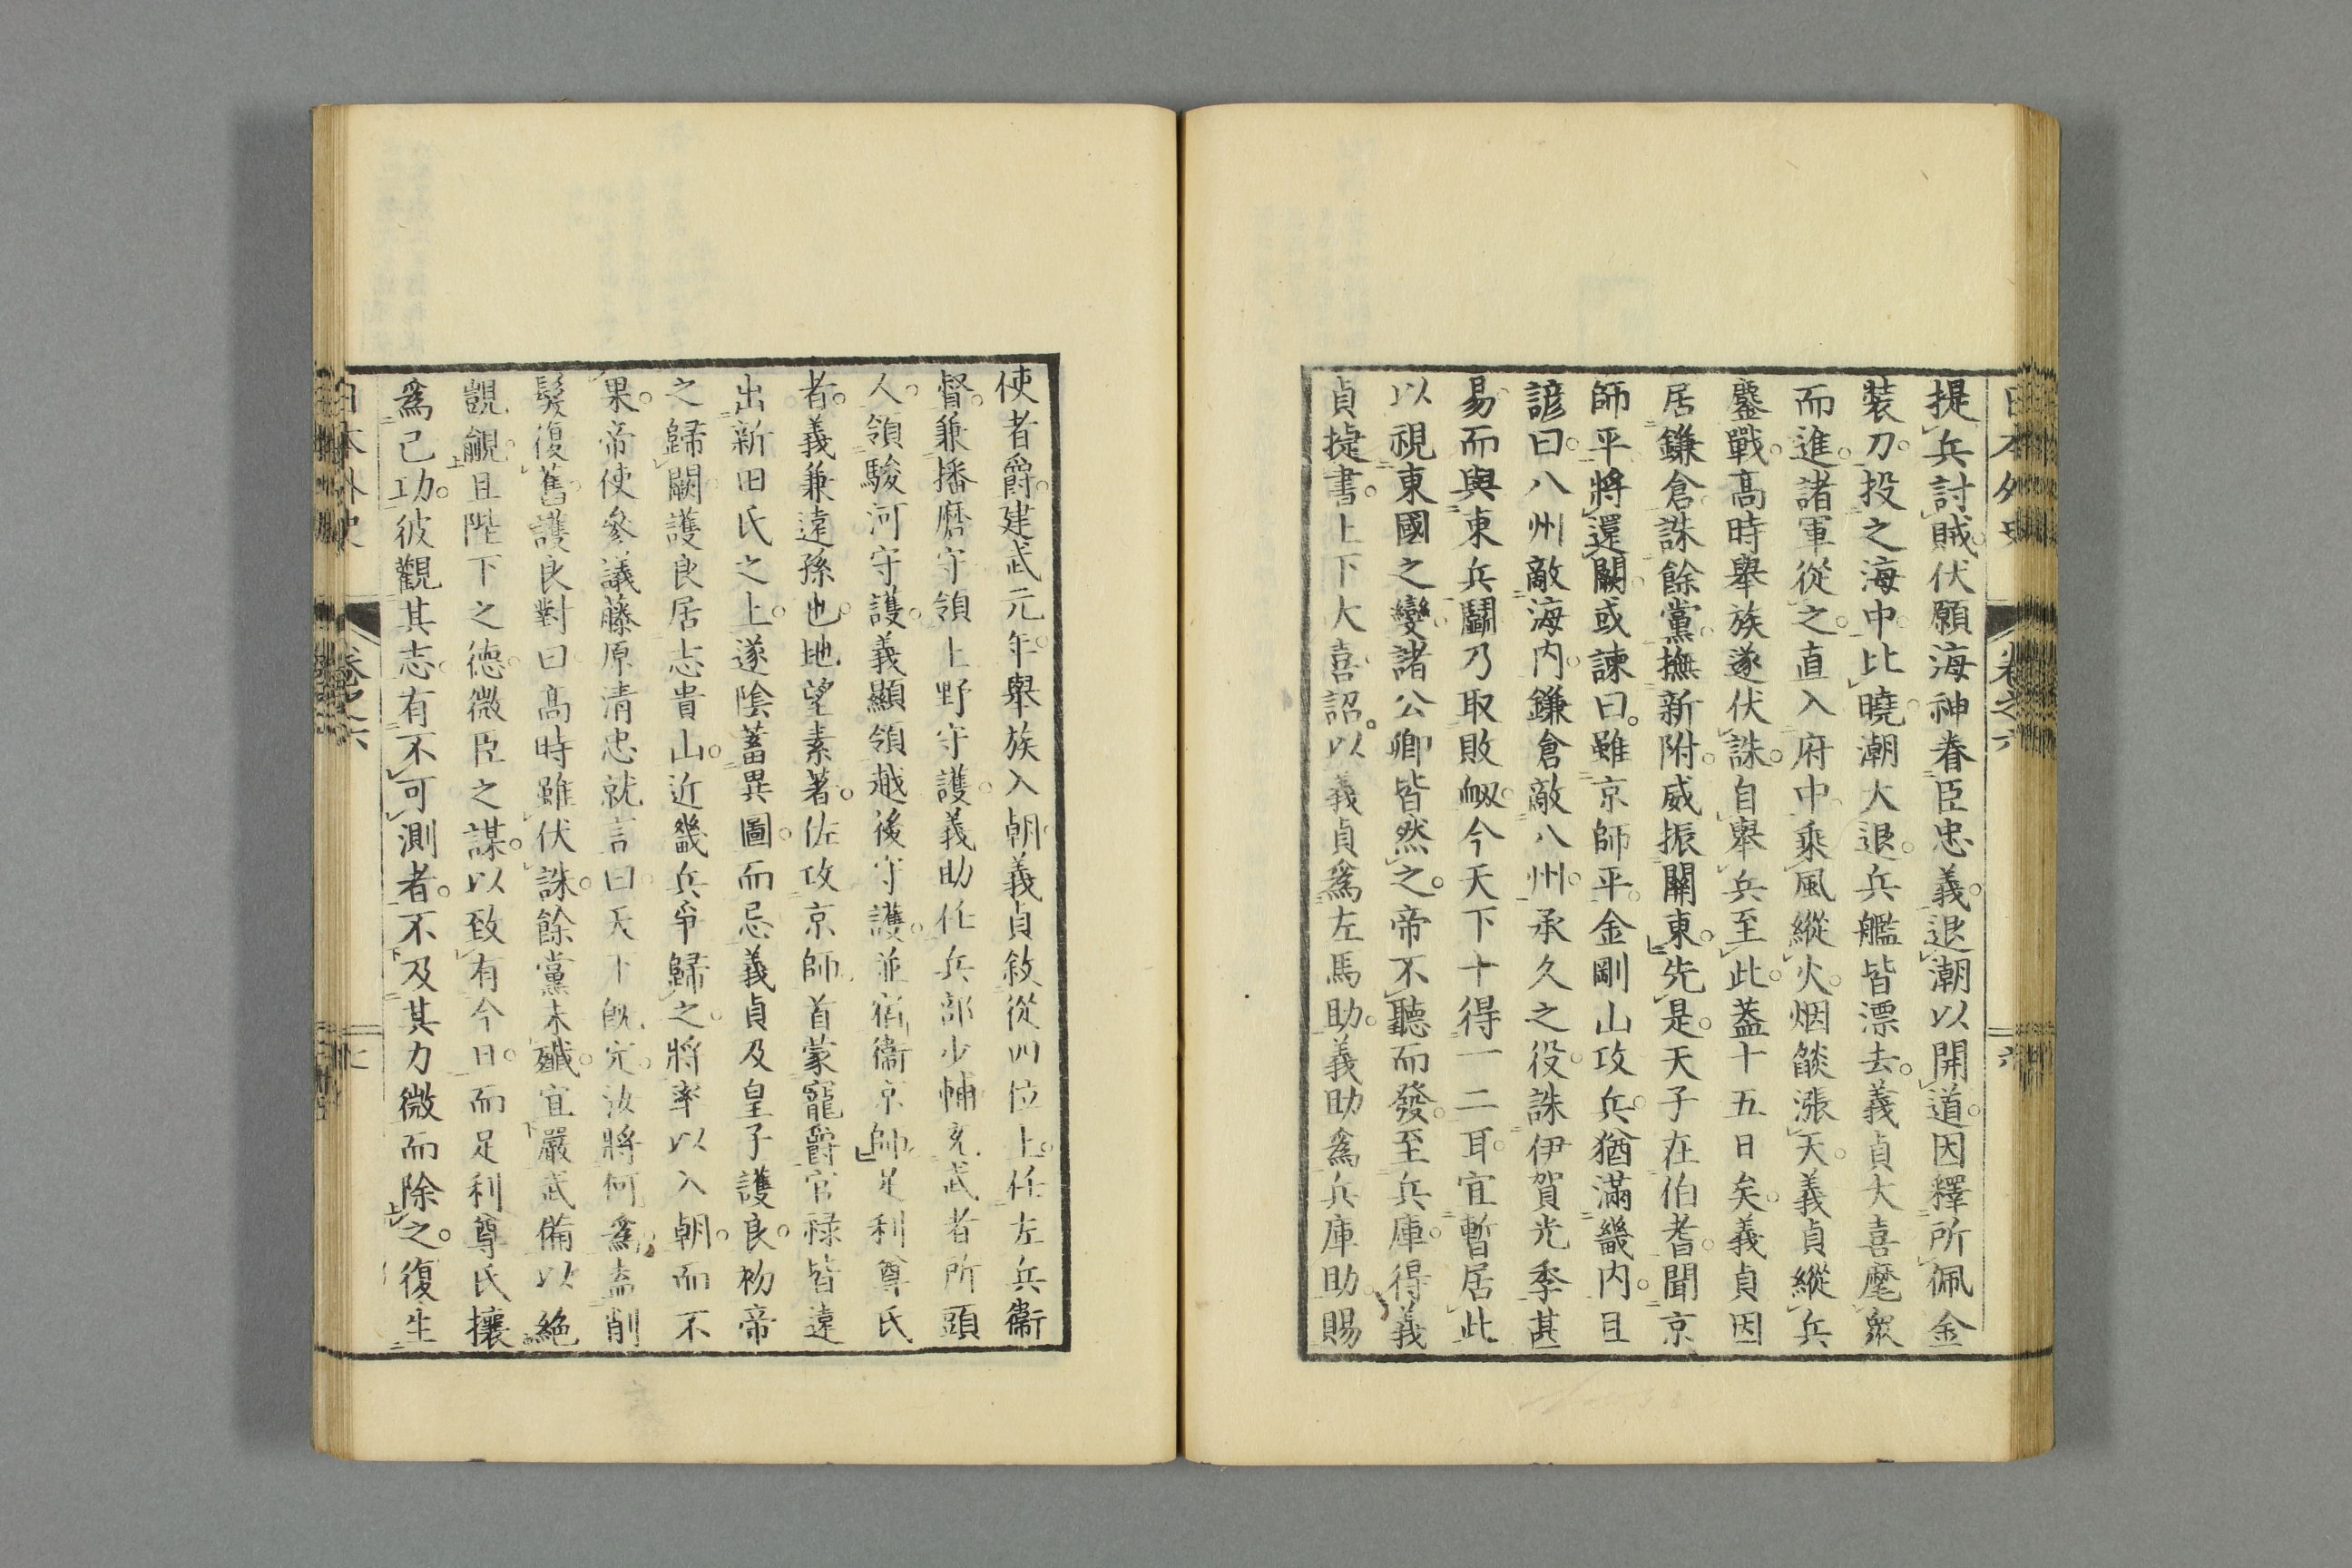 日本外史 卷之六 六
提兵討賊伏願海神眷臣忠義退潮以開道因釋所佩金
裝刀投之海中比曉潮大退兵艦皆漂去義貞大喜麾衆
而進諸軍從之直入府中乘風縱火烟燄漲天義貞縱兵
鏖戰高時舉族遂伏誅自舉兵至此蓋十五日矣義貞因
居鎌倉誅餘黨撫新附威振關東先是天子在伯耆聞京
師平將還闕或諫曰雖京師平金剛山攻兵猶滿畿内且
諺曰八州敵海内鎌倉敵八州承久之役誅伊賀光季甚
易而與東兵鬪乃取敗衂今天下十得一二耳宜暫居此
以視東國之變諸公卿皆然之帝不聽而發至兵庫得義
貞捷書上下大喜詔以義貞爲左馬助義助爲兵庫助賜
使者爵建武元年舉族入朝義貞敘從四位上任左兵衞
督兼播磨守領上野守護義助任兵部少輔充武者所頭
人領駿河守護義顯領越後守護並宿衞京師足利尊氏
者義兼遠孫也地望素著佐攻京師首蒙寵爵官祿皆遠
出新田氏之上遂陰蓄異圖而忌義貞及皇子護良初帝
之歸闕護良居志貴山近畿兵爭歸之將率以入朝而不
果帝使參議藤原清忠就言曰天下旣定汝將何爲盍削
髮復舊護良對曰高時雖伏誅餘黨未殲宜嚴武備以絶
覬覦且陛下之德微臣之謀以致有今日而足利尊氏攘
爲己功彼觀其志有不可測者不及其力微而除之復生
日本外史 卷之六 七